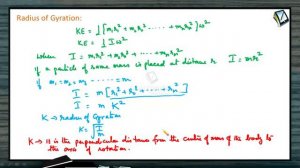 Radius of Gyration:
KE = 1/2 [m₁r₁² + m₂r₂² + ------ + mₙrₙ²] ω²
KE = 1/2 I ω²
where I = m₁r₁² + m₂r₂² + ------ + mₙrₙ²
if a particle of same mass is placed at distance r I = mr²
if m₁ = m₂ = ------ = m
I = m [r₁² + r₂² + ------ + rₙ²]
I = m K²
K → radius of Gyration
K = √(I/m)
K → It is the perpendicular distance from the centre of mass of the body to
the axis of rotation.